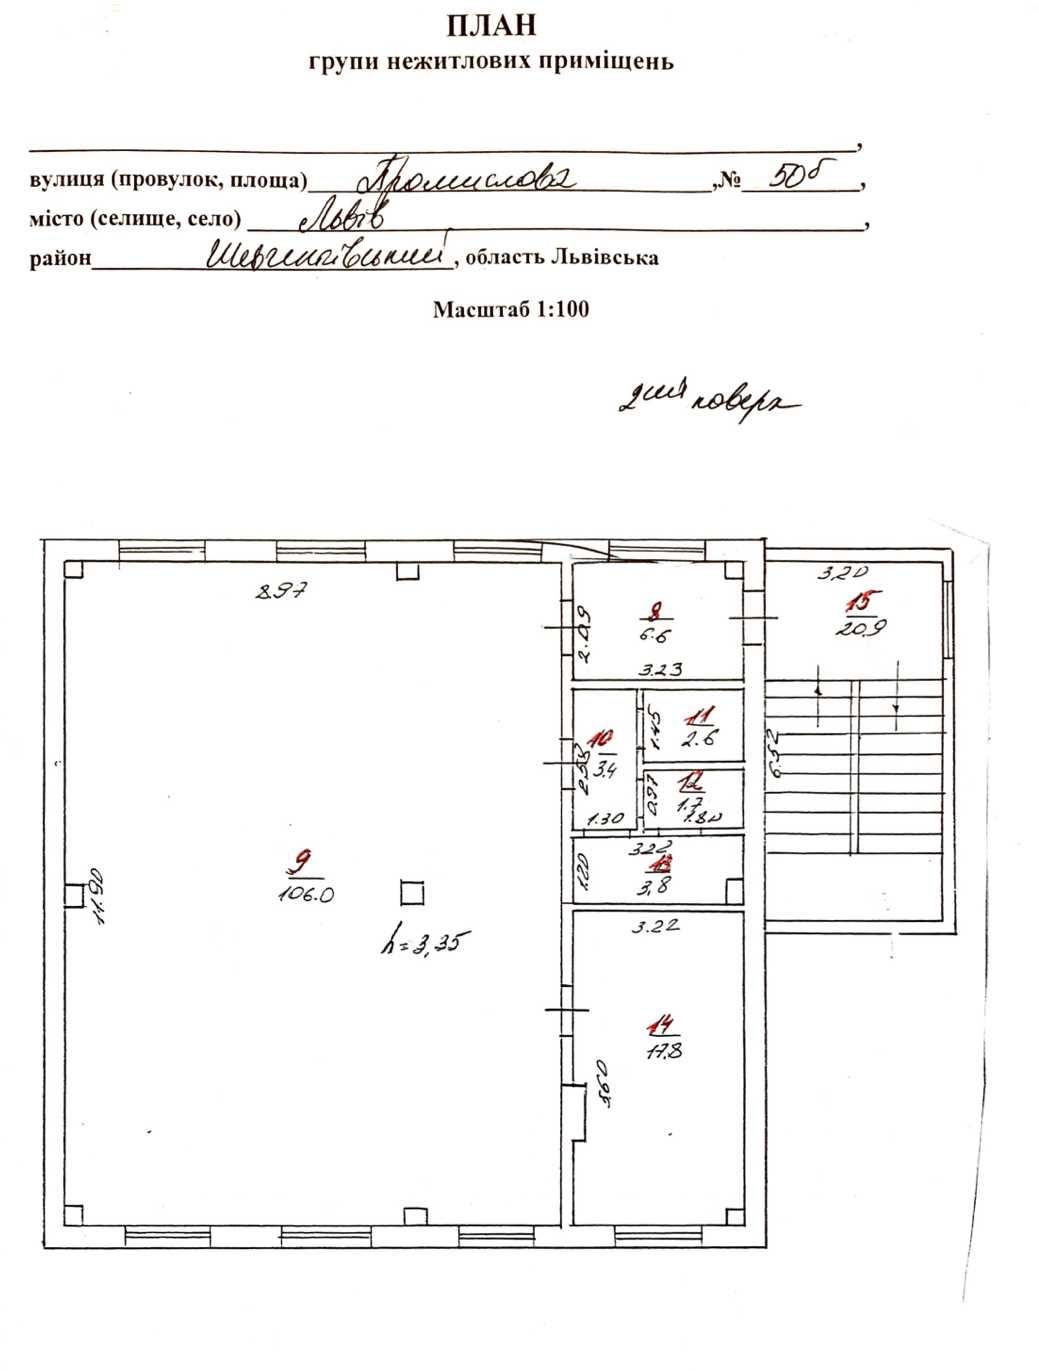 ПЛАН
групи нежитлових приміщень
,
вулиця (провулок, площа) Промислова ,№ 50б ,
місто (селище, село) Львів ,
район Шевченківський , область Львівська
Масштаб 1:100
2ий поверх
8.97
3.20
15
20.9
2.09
8
6.6
3.23
10
3.4
2.58
1.30
1.45
11
2.6
0.97
12
1.7
1.80
6.52
3.22
1.20
13
3.8
9
106.0
11.90
h=3,35
3.22
14
17.8
5.60